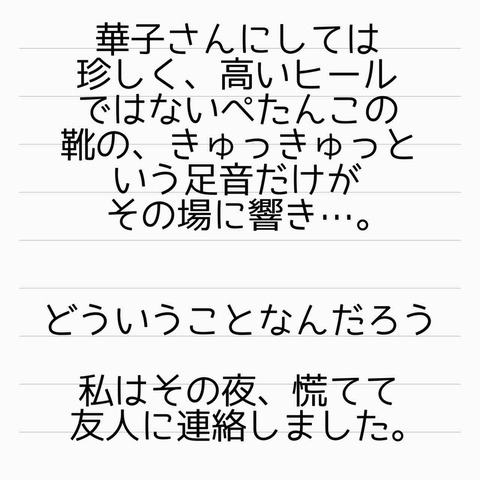 華子さんにしては
珍しく、高いヒール
ではないぺたんこの
靴の、きゅっきゅっと
いう足音だけが
その場に響き…。
どういうことなんだろう
私はその夜、慌てて
友人に連絡しました。